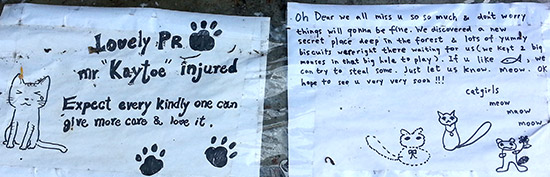 Lovely PR
mr."Kaytoe" injured
Expect every kindly one can
give more care & love it.
Oh Dear we all miss u so so much, & don't worry
things will gonna be fine. We discovered a new
secret place deep in the forest & lots of yumdy
biscuits were right there waiting for us (we kept 2 big
mouses in that big hole to play). If u like , we
can try to steal some. Just let us know. meow. OK
hope to see u very very soon !!!
catgirls
meow
meow
meow